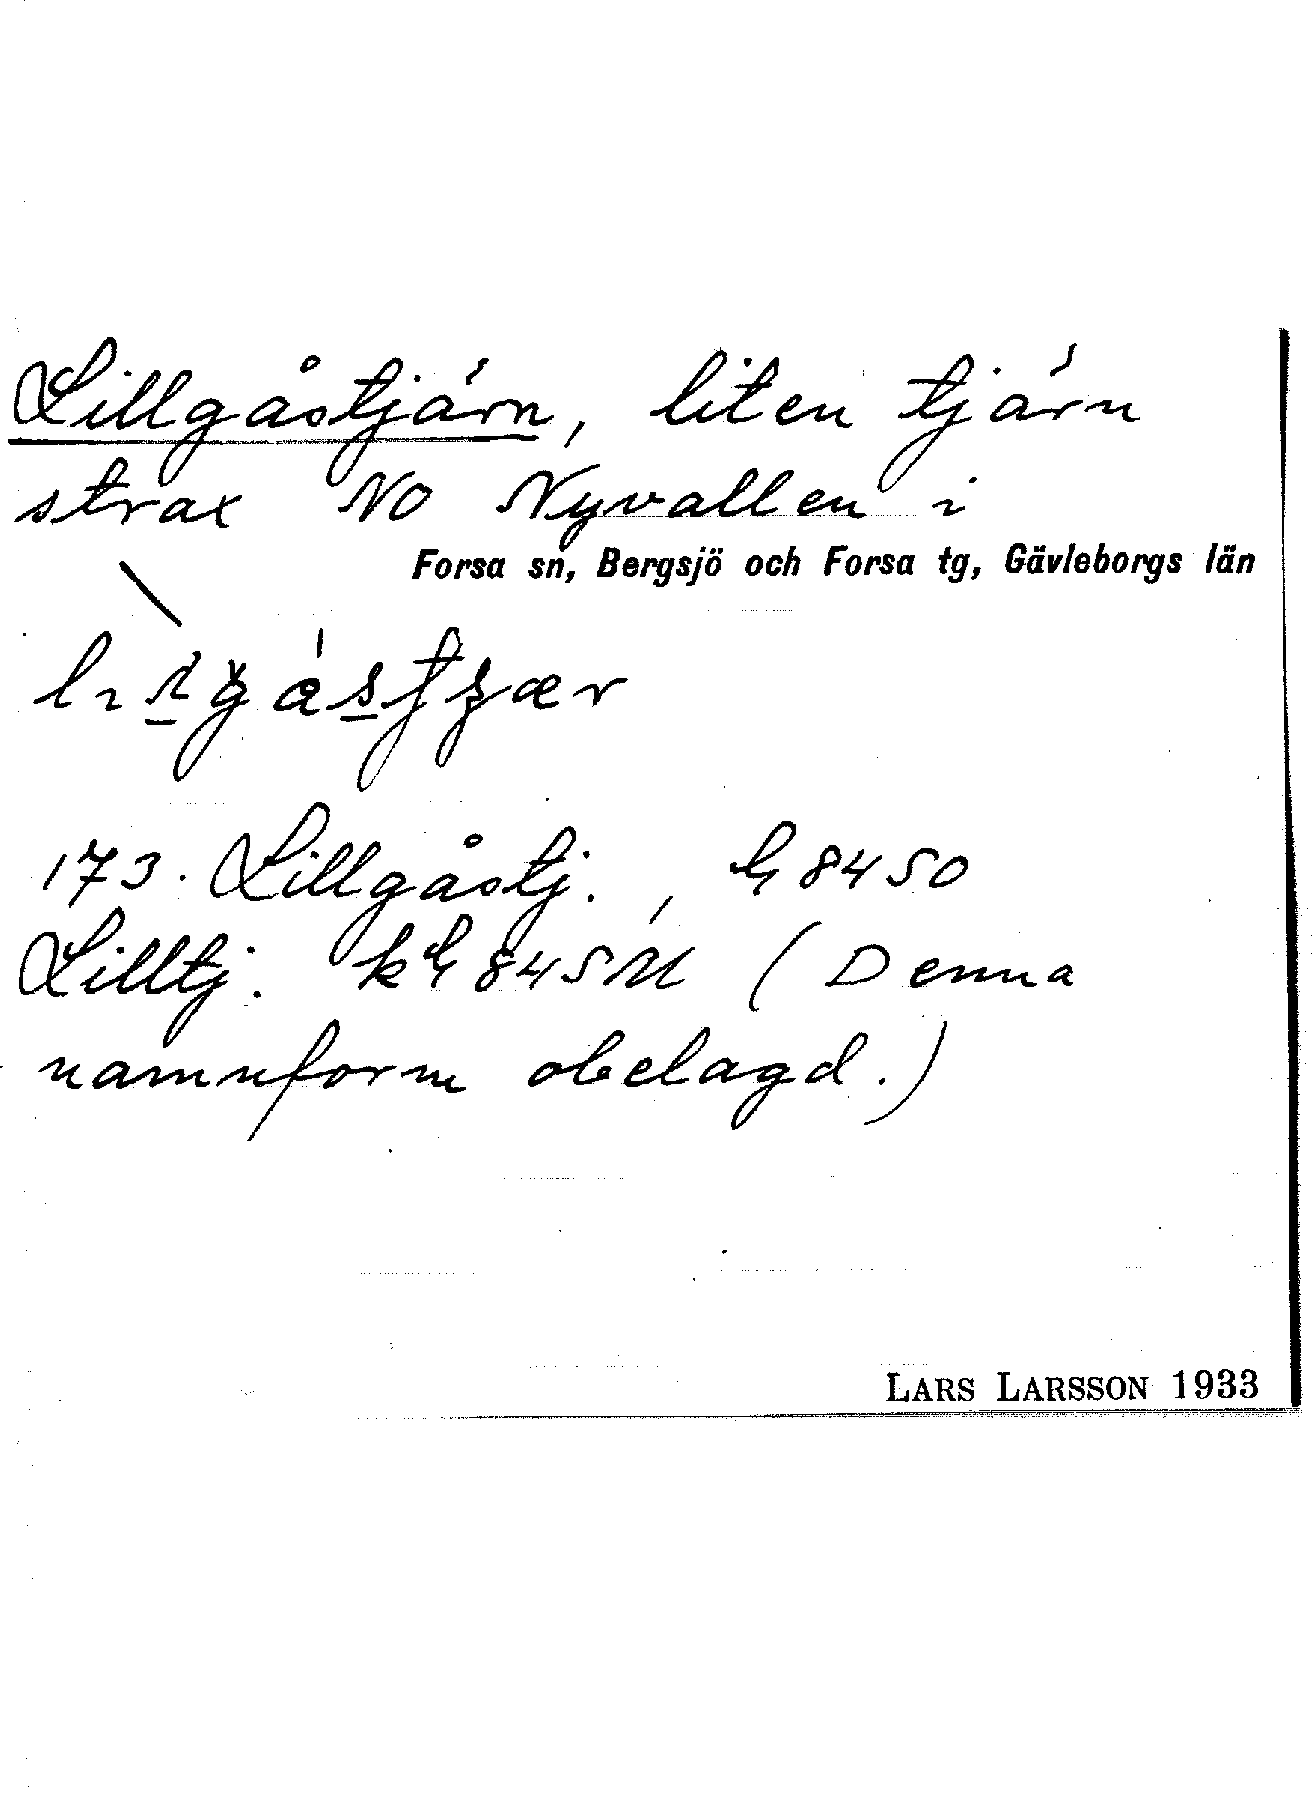 Lillgåstjärn, liten tjärn
strax NO Nyvallen i
Forsa sn, Bergsjö och Forsa tg, Gävleborgs län
173. Lillgåstj.,
Lilltj. (Denna
namnform obelagd.)
LARS LARSSON 1933